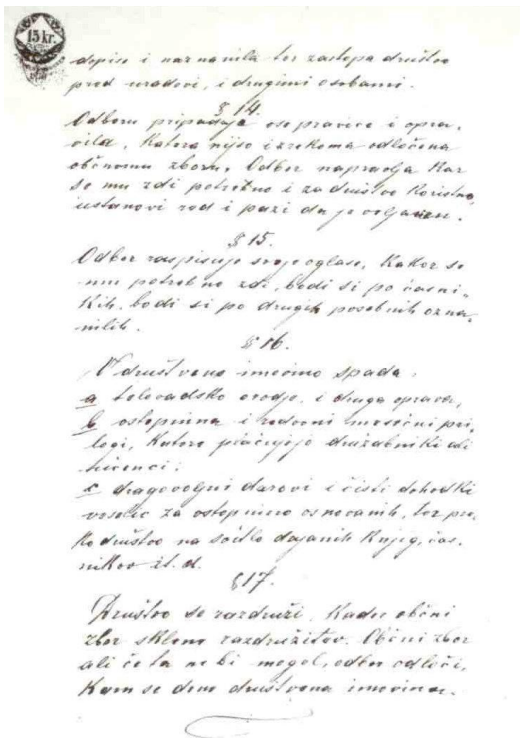 15 kr.
dopise i naznanila ter zastopa društvo
pred uradovi, i drugimi osobami.
§ 14.
Odboru pripadaje vse pravice i opra-
vila, katera nijso izrekoma odločena
občnemu zboru. Odbor napravlja kar
se mu zdi potrebno i za društvo koristno,
ustanovi red i pazi da je
§ 15.
Odbor razpisuje svoje oglase, kakor se
mu potrebno zdi, bodi si po časni-
kih, bodi si po drugih posebnih ozna-
nilih.
§ 16.
V društveno imovino spada:
a telovadsko orodje, i druga oprava,
b vstopnina i redovni mesečni pri-
logi, katere plačujejo družabniki ali
učenci;
c dragovoljni darovi i čisti dohodki
veselic za vstopnino osnovanih, ter pre-
ko društvo na sodlo dajanih knjig, čas-
nikov it. d.
§ 17.
Društvo se razdruži, kadar občni
zbor sklene razdružitev. Občni zbor
ali če ta ne bi mogel, odbor odloči,
kam se dene društvena imovina.